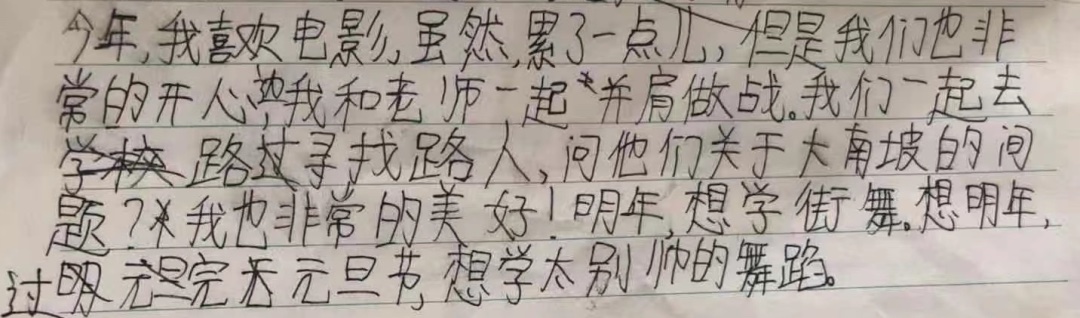 今年,我喜欢电影,虽然,累了一点儿,但是我们也非
常的开心,我和老师一起并肩做战。我们一起去
学校路边寻找路人,问他们关于大南坡的间
题?我也非常的美好!明年,想学街舞。想明年,
过完元旦节,想学太别帅的舞蹈。